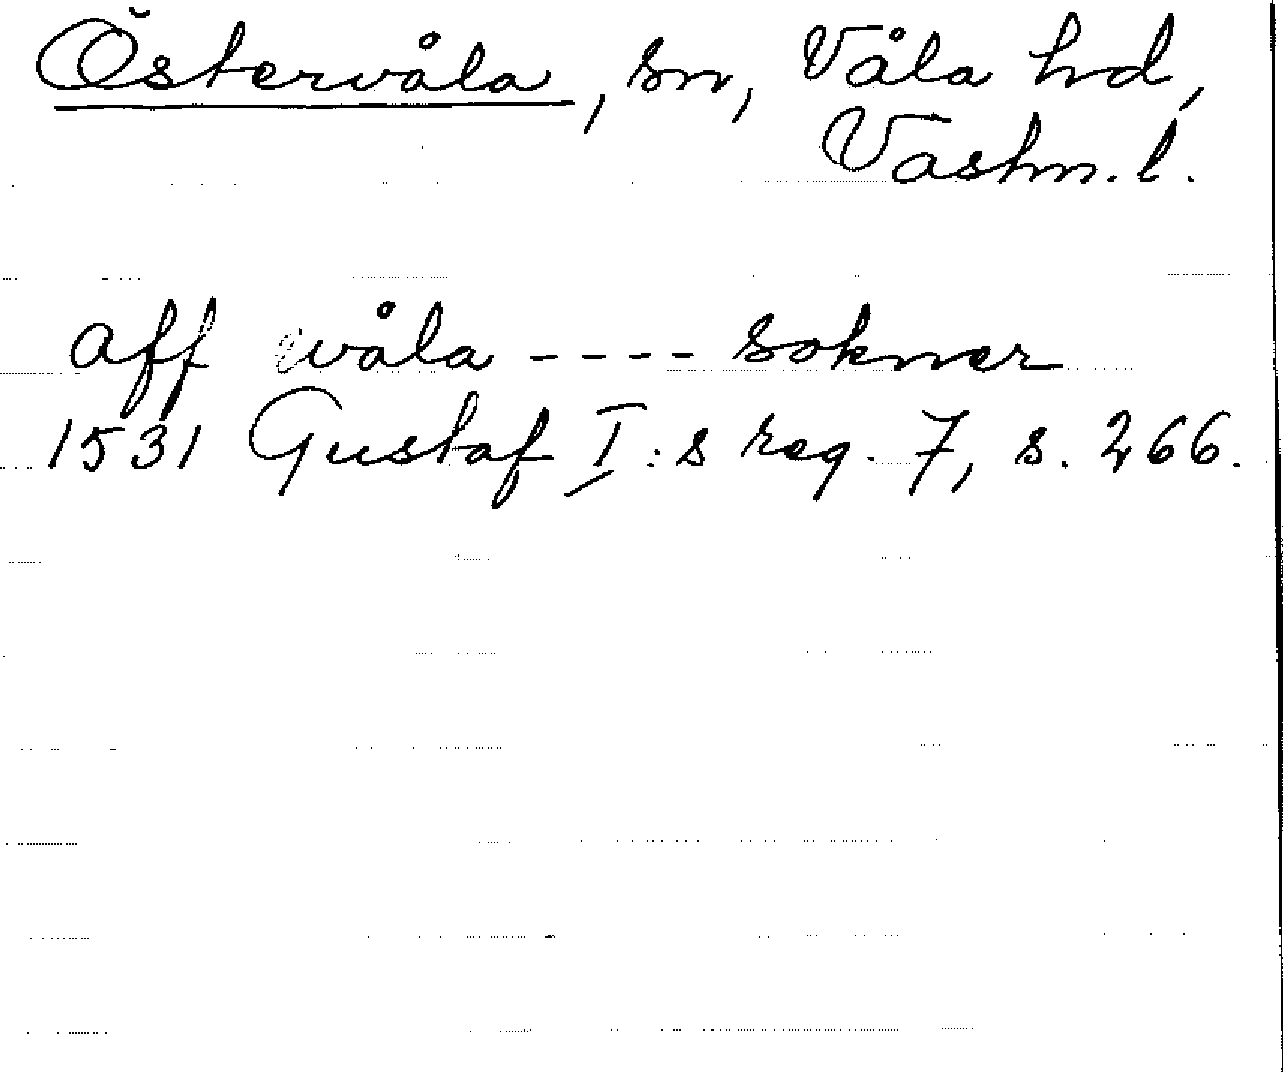 Östervåla, sn, Våla hd,
Vastm. l.
aff wåla ---- sokner
1531 Gustaf I:s reg. 7, s. 266.